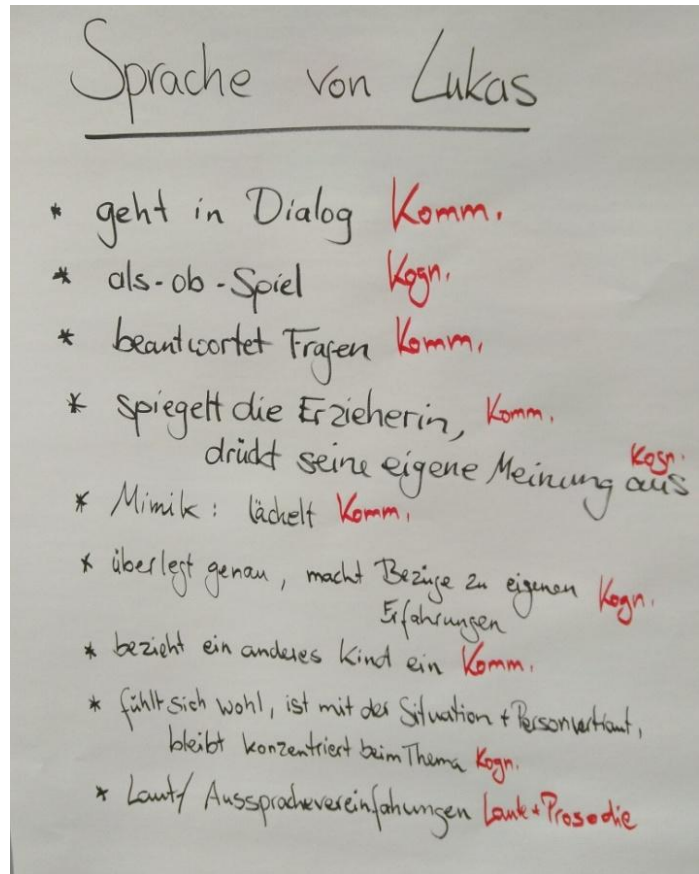 Sprache von Lukas
* geht in Dialog Komm.
* als-ob-Spiel Kogn.
* beantwortet Fragen Komm.
* spiegelt die Erzieherin, Komm.
drückt seine eigene Meinung aus Kogn.
* Mimik: lächelt Komm.
* überlegt genau, macht Bezüge zu eigenen Kogn.
Erfahrungen
* bezieht ein anderes Kind ein Komm.
* fühlt sich wohl, ist mit der Situation + Person vertraut,
bleibt konzentriert beim Thema Kogn.
* Laut/ Aussprachevereinfahungen Laute+Prosodie